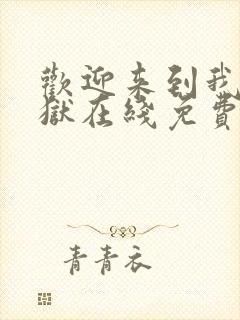 歡迎来到我
獄在綫免費
青青衣